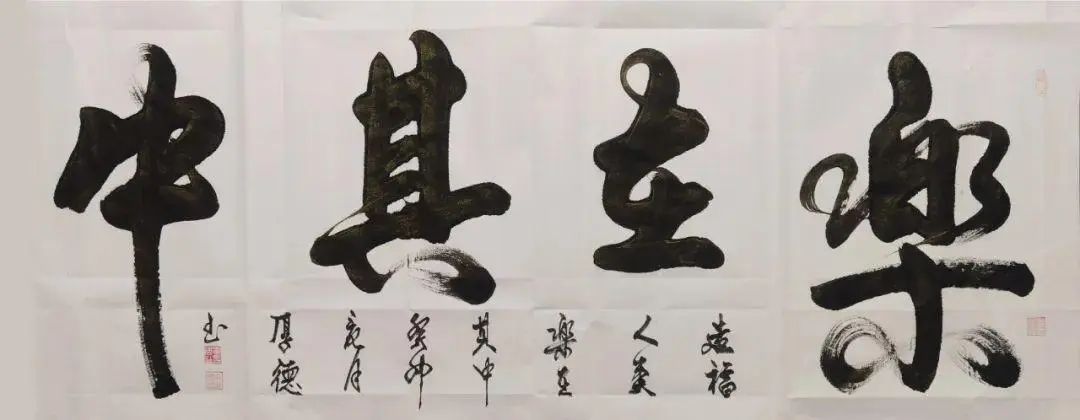 樂在其中
造福
人类
樂在
其中
癸卯
月
厚德
书